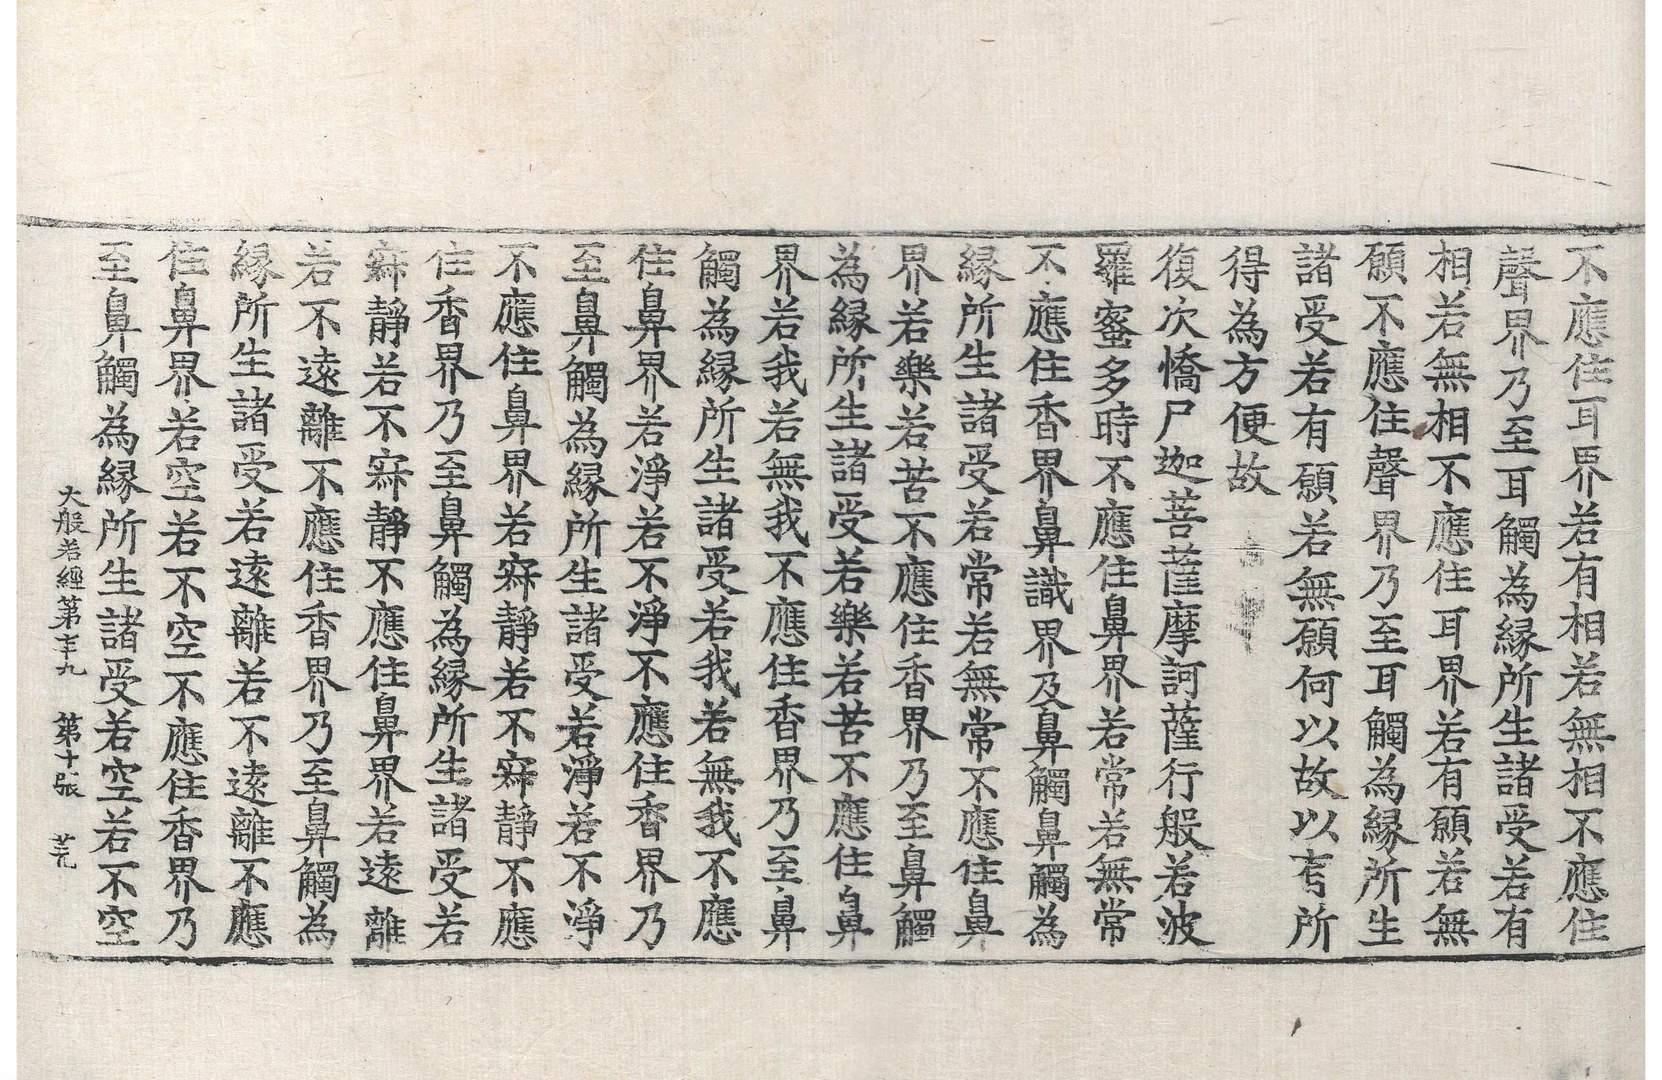 不應住耳界若有相若無相不應住
聲界乃至耳觸為縁所生諸受若有
相若無相不應住耳界若有願若無
願不應住聲界乃至耳觸為縁所生
諸受若有願若無願何以故以有所
得為方便故
復次憍尸迦菩薩摩訶薩行般若波
羅蜜多時不應住鼻界若常若無常
不應住香界鼻識界及鼻觸鼻觸為
縁所生諸受若常若無常不應住鼻
界若樂若苦不應住香界乃至鼻觸
為縁所生諸受若樂若苦不應住鼻
界若我若無我不應住香界乃至鼻
觸為縁所生諸受若我若無我不應
住鼻界若淨若不淨不應住香界乃
至鼻觸為縁所生諸受若淨若不淨
不應住鼻界若寂靜若不寂靜不應
住香界乃至鼻觸為縁所生諸受若
寂靜若不寂靜不應住鼻界若遠離
若不遠離不應住香界乃至鼻觸為
縁所生諸受若遠離若不遠離不應
住鼻界若空若不空不應住香界乃
至鼻觸為縁所生諸受若空若不空
大般若經第 九 第十張